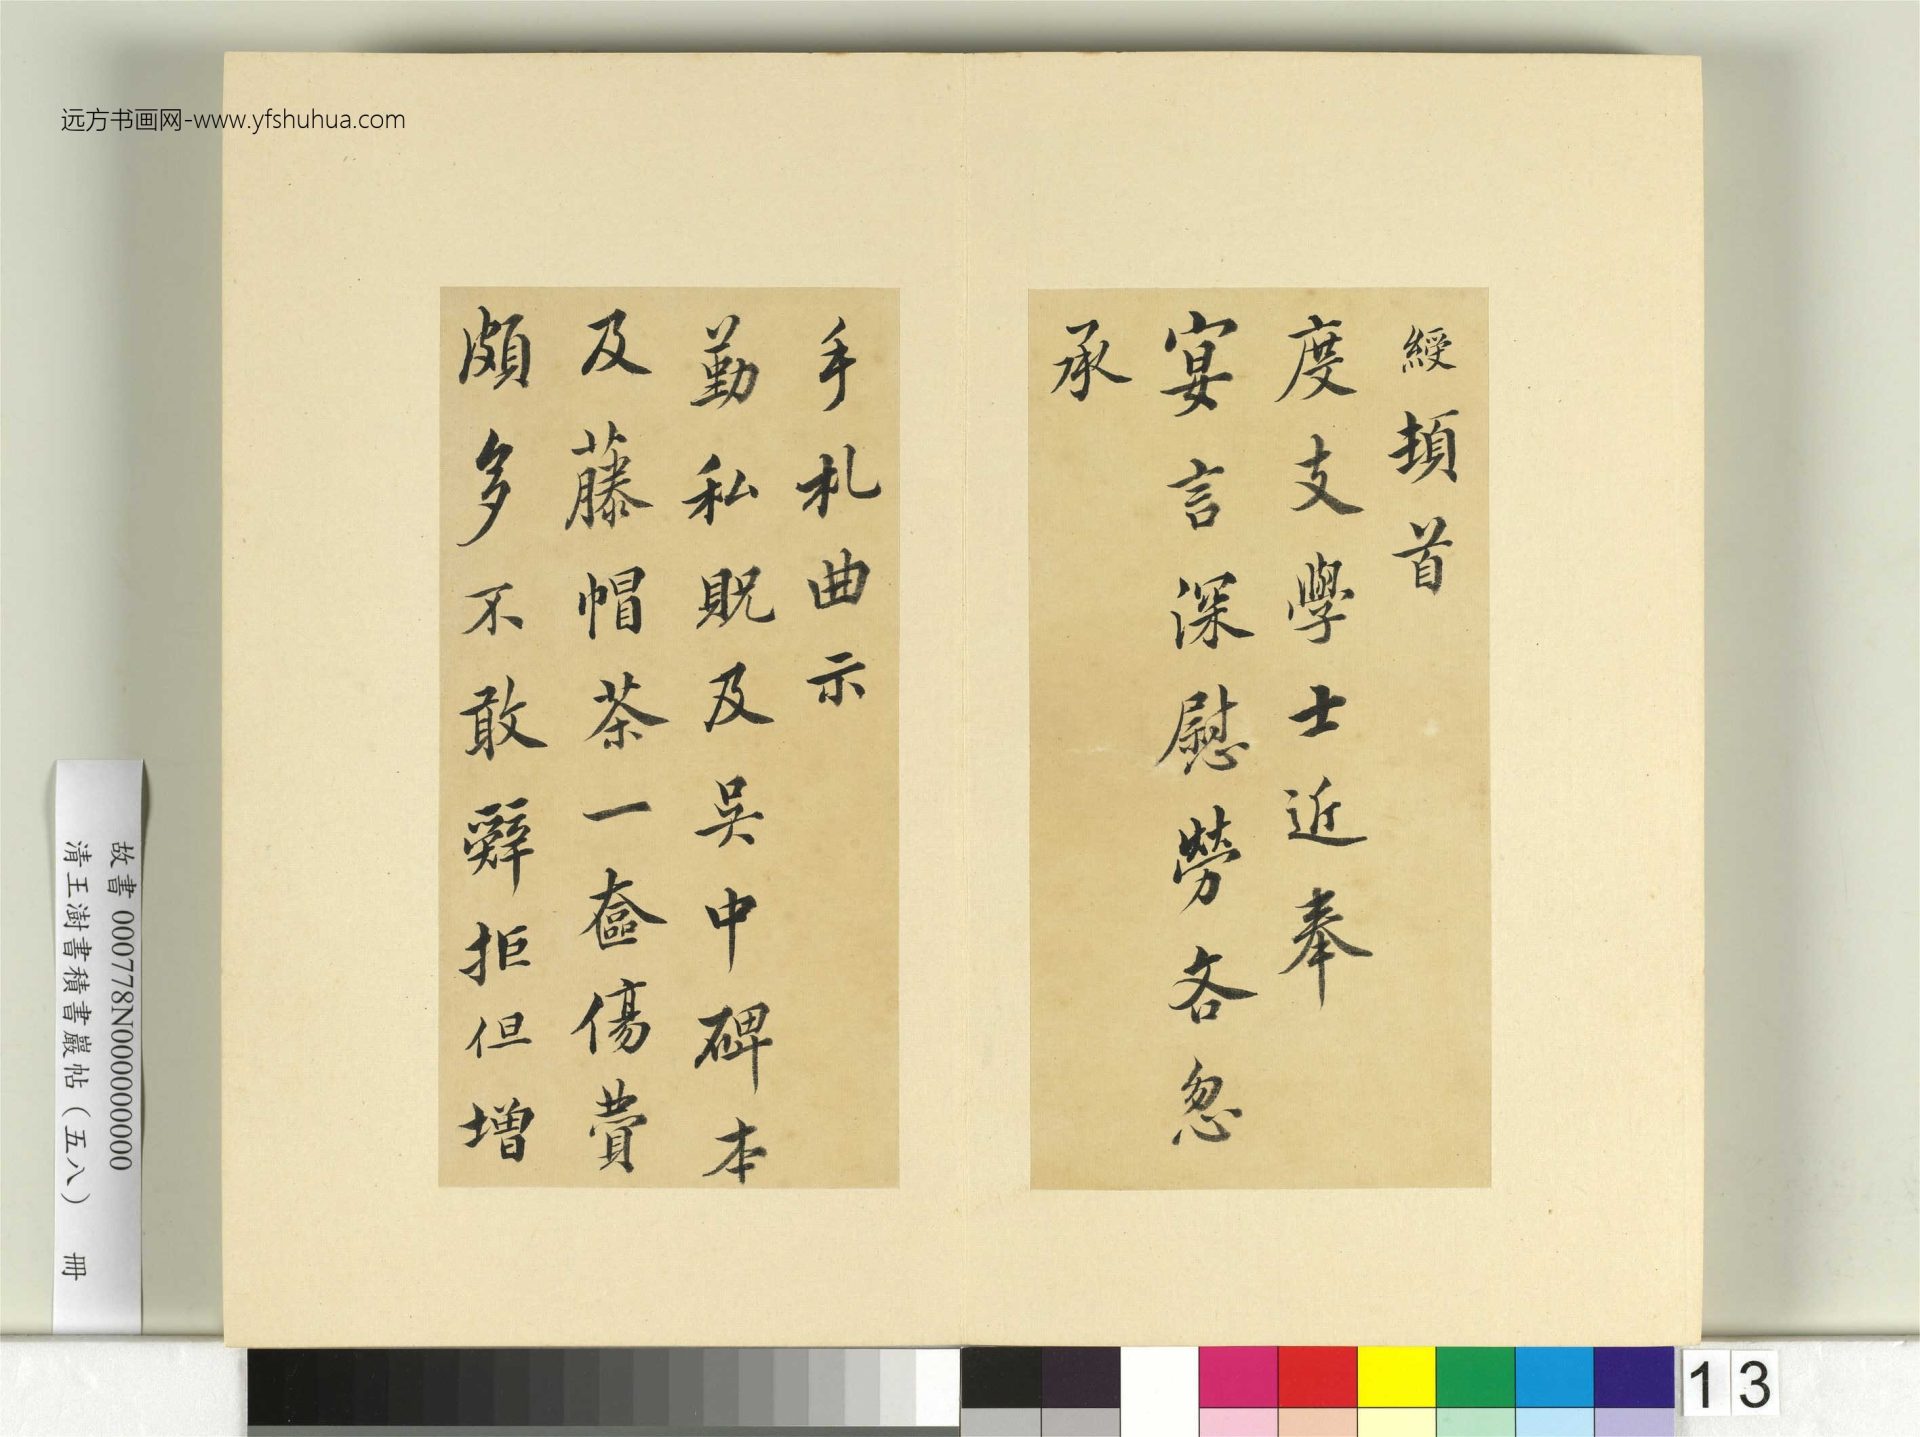 远方书画网-www.yfshuhua.com
綬頓首
度支學士近奉
宴言深慰勞各忽
承
手札曲示
勤私貺及吳中碑本
及藤帽茶一奩傷費
頗多不敢辭拒但增
故書 000778N000000000
清王澍書積書巖帖（五八） 冊
13